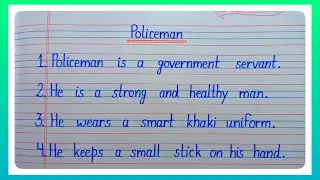 Policeman
1. Policeman is a government servant.
2. He is a strong and healthy man.
3. He wears a smart khaki uniform.
4. He keeps a small stick on his hand.